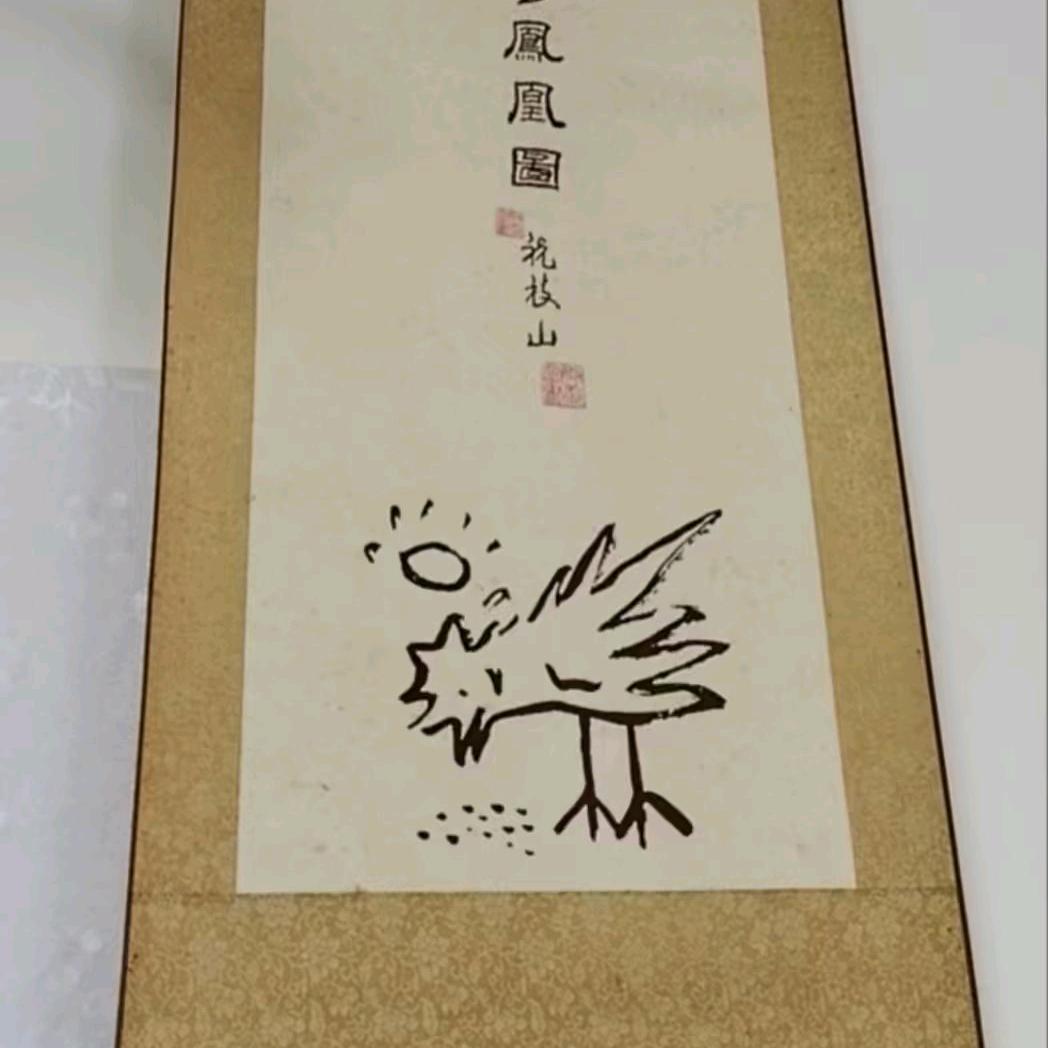 鳳凰圖
祝枝山